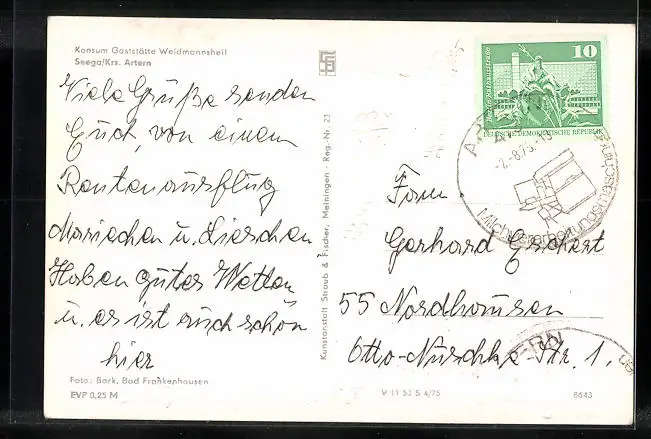 Konsum Gaststätte Weidmannsheil
Seega/Krs. Artern
Viele Grüße senden
Euch, von einem
Rentenausflug
Mariechen u. Lieschen
Haben gutes Wetter
u. es ist auch schön
hier
Foto: Bark, Bad Frankenhausen
EVP 0,25 M
Kunstanstalt Straub & Fischer, Meiningen · Reg.-Nr. 23
V 11 50 S 4/75
8643
10
DEUTSCHE DEMOKRATISCHE REPUBLIK
-2.-8.75.-10
Milchverarbeitungsmasch
Fam.
Gerhard
55 Nordhausen
Otto-Nuschke-Str. 1.